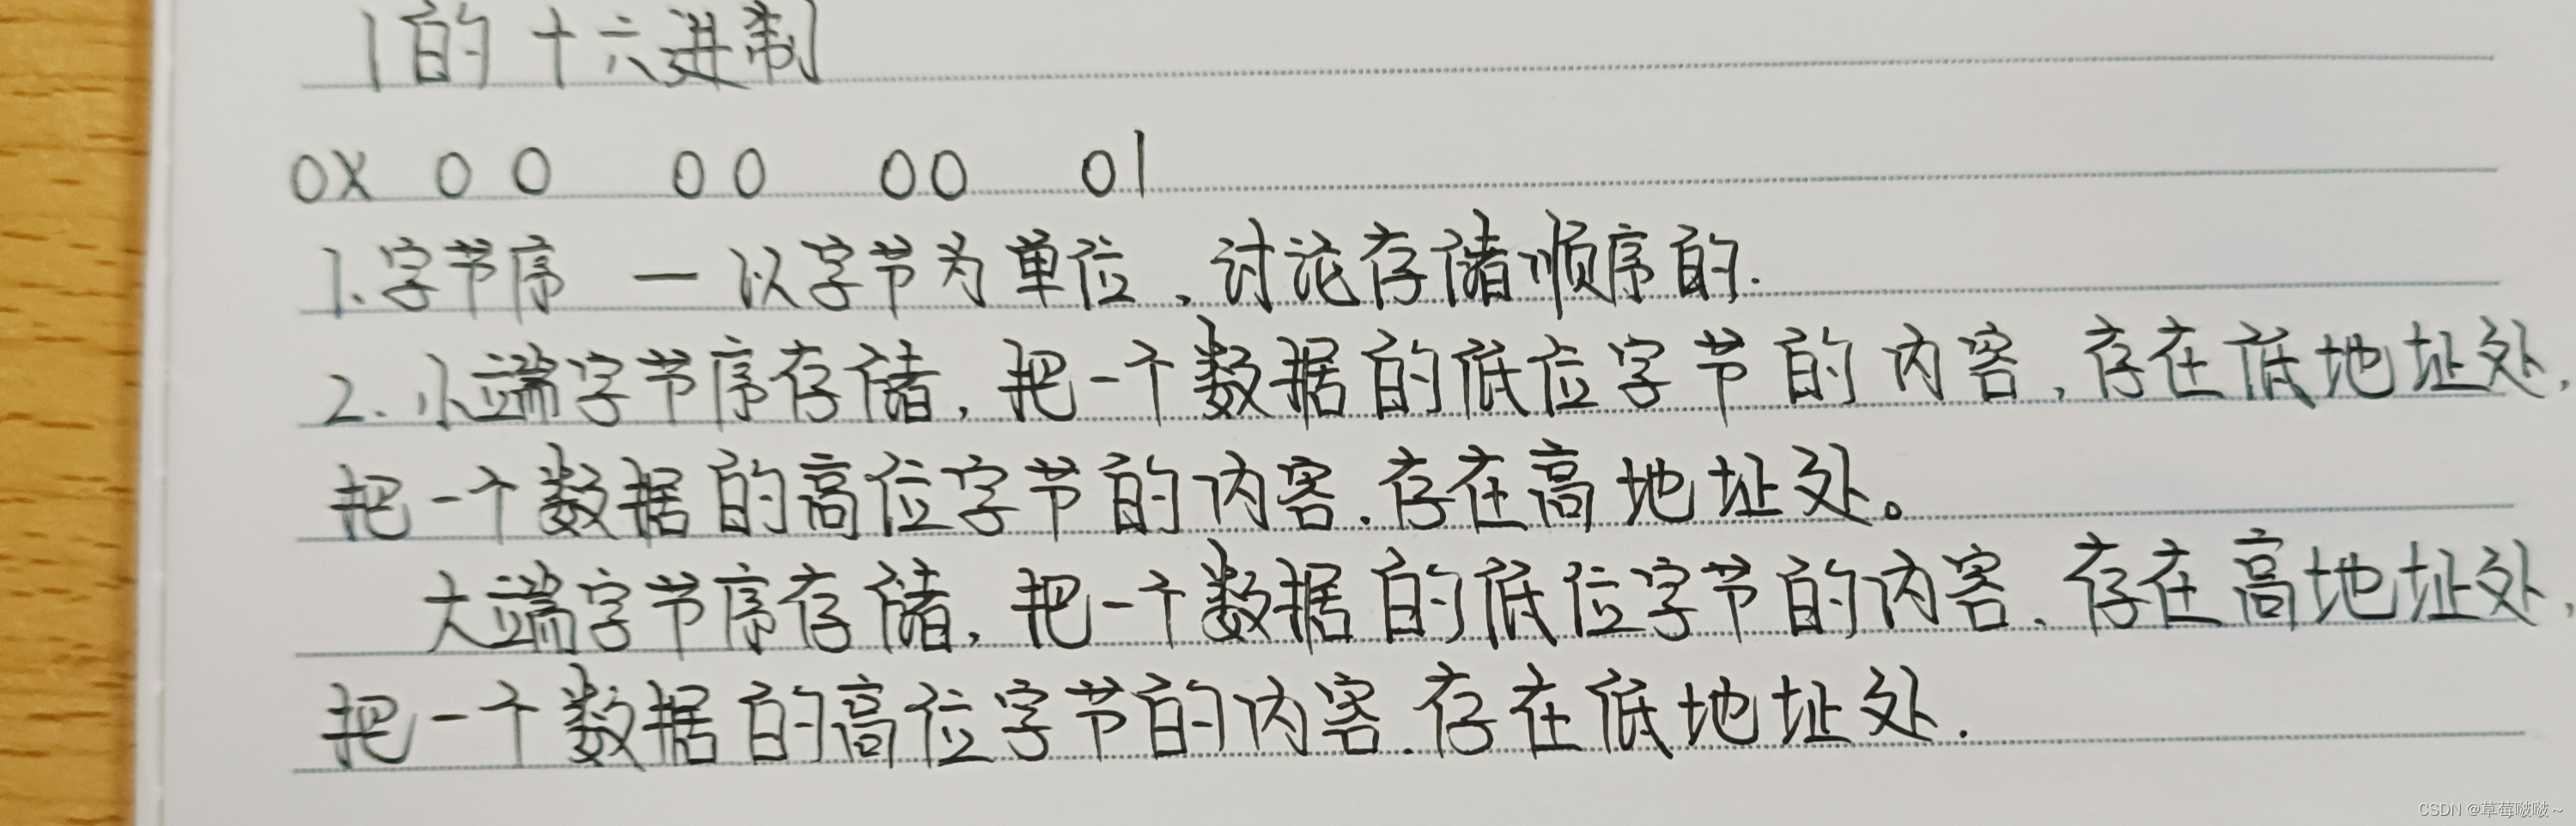 1的十六进制
0X 00 00 00 01
1.字节序 — 以字节为单位,讨论存储顺序的.
2.小端字节序存储,把一个数据的低位字节的内容,存在低地址处,
把一个数据的高位字节的内容.存在高地址处。
大端字节序存储,把一个数据的低位字节的内容.存在高地址处,
把一个数据的高位字节的内容.存在低地址处.
CSDN @草莓啵啵~